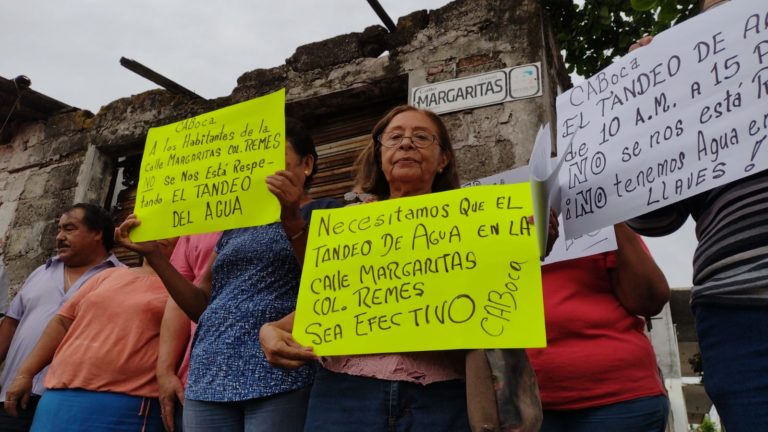 CABoca
A los Habitantes de la
Calle MARGARITAS COL. REMES
NO se Nos Está Respe-
tando EL TANDEO
DEL AGUA
Calle
MARGARITAS
Necesitamos Que EL
TANDEO DE AGUA EN LA
CALLE MARGARITAS
COL. REMES
SEA EFECTIVO
CABoca
CABoca
EL TANDEO DE
de 10 A.M. A 15
NO se nos está
¡NO tenemos Agua en
LLAVES!